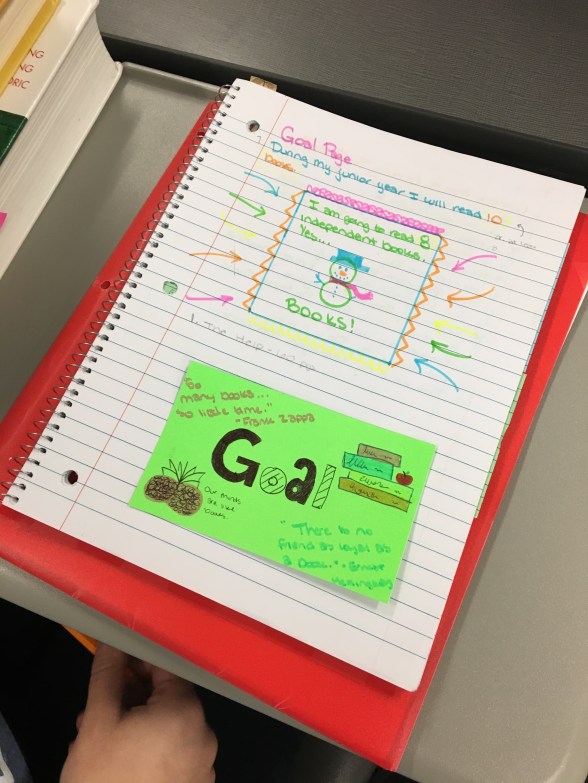 NG
NG
RIC
Goal Page
During my junior year I will read 10
books.
I am going to read 8
independent books.
Yes...
BOOKS!
1. The Help -
"So
many books...
so little time."
- Frank Zappa
Goal
Our minds
are like
"There is no
friend as loyal as
a book." - Ernest
Hemingway